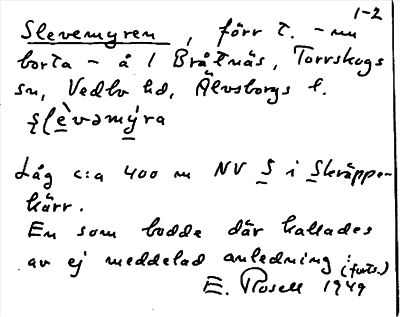 1-2
Slevemyren, förr t. - nu
borta - å 1 Bråtnäs, Torrskogs
sn, Vedbo hd, Älvsborgs l.
ʂḷèvəmýra
Låg c:a 400 m NV S i Skräppe-
kärr.
En som bodde där kallades
av ej meddelad anledning: (forts.)
E. Rosell 1949